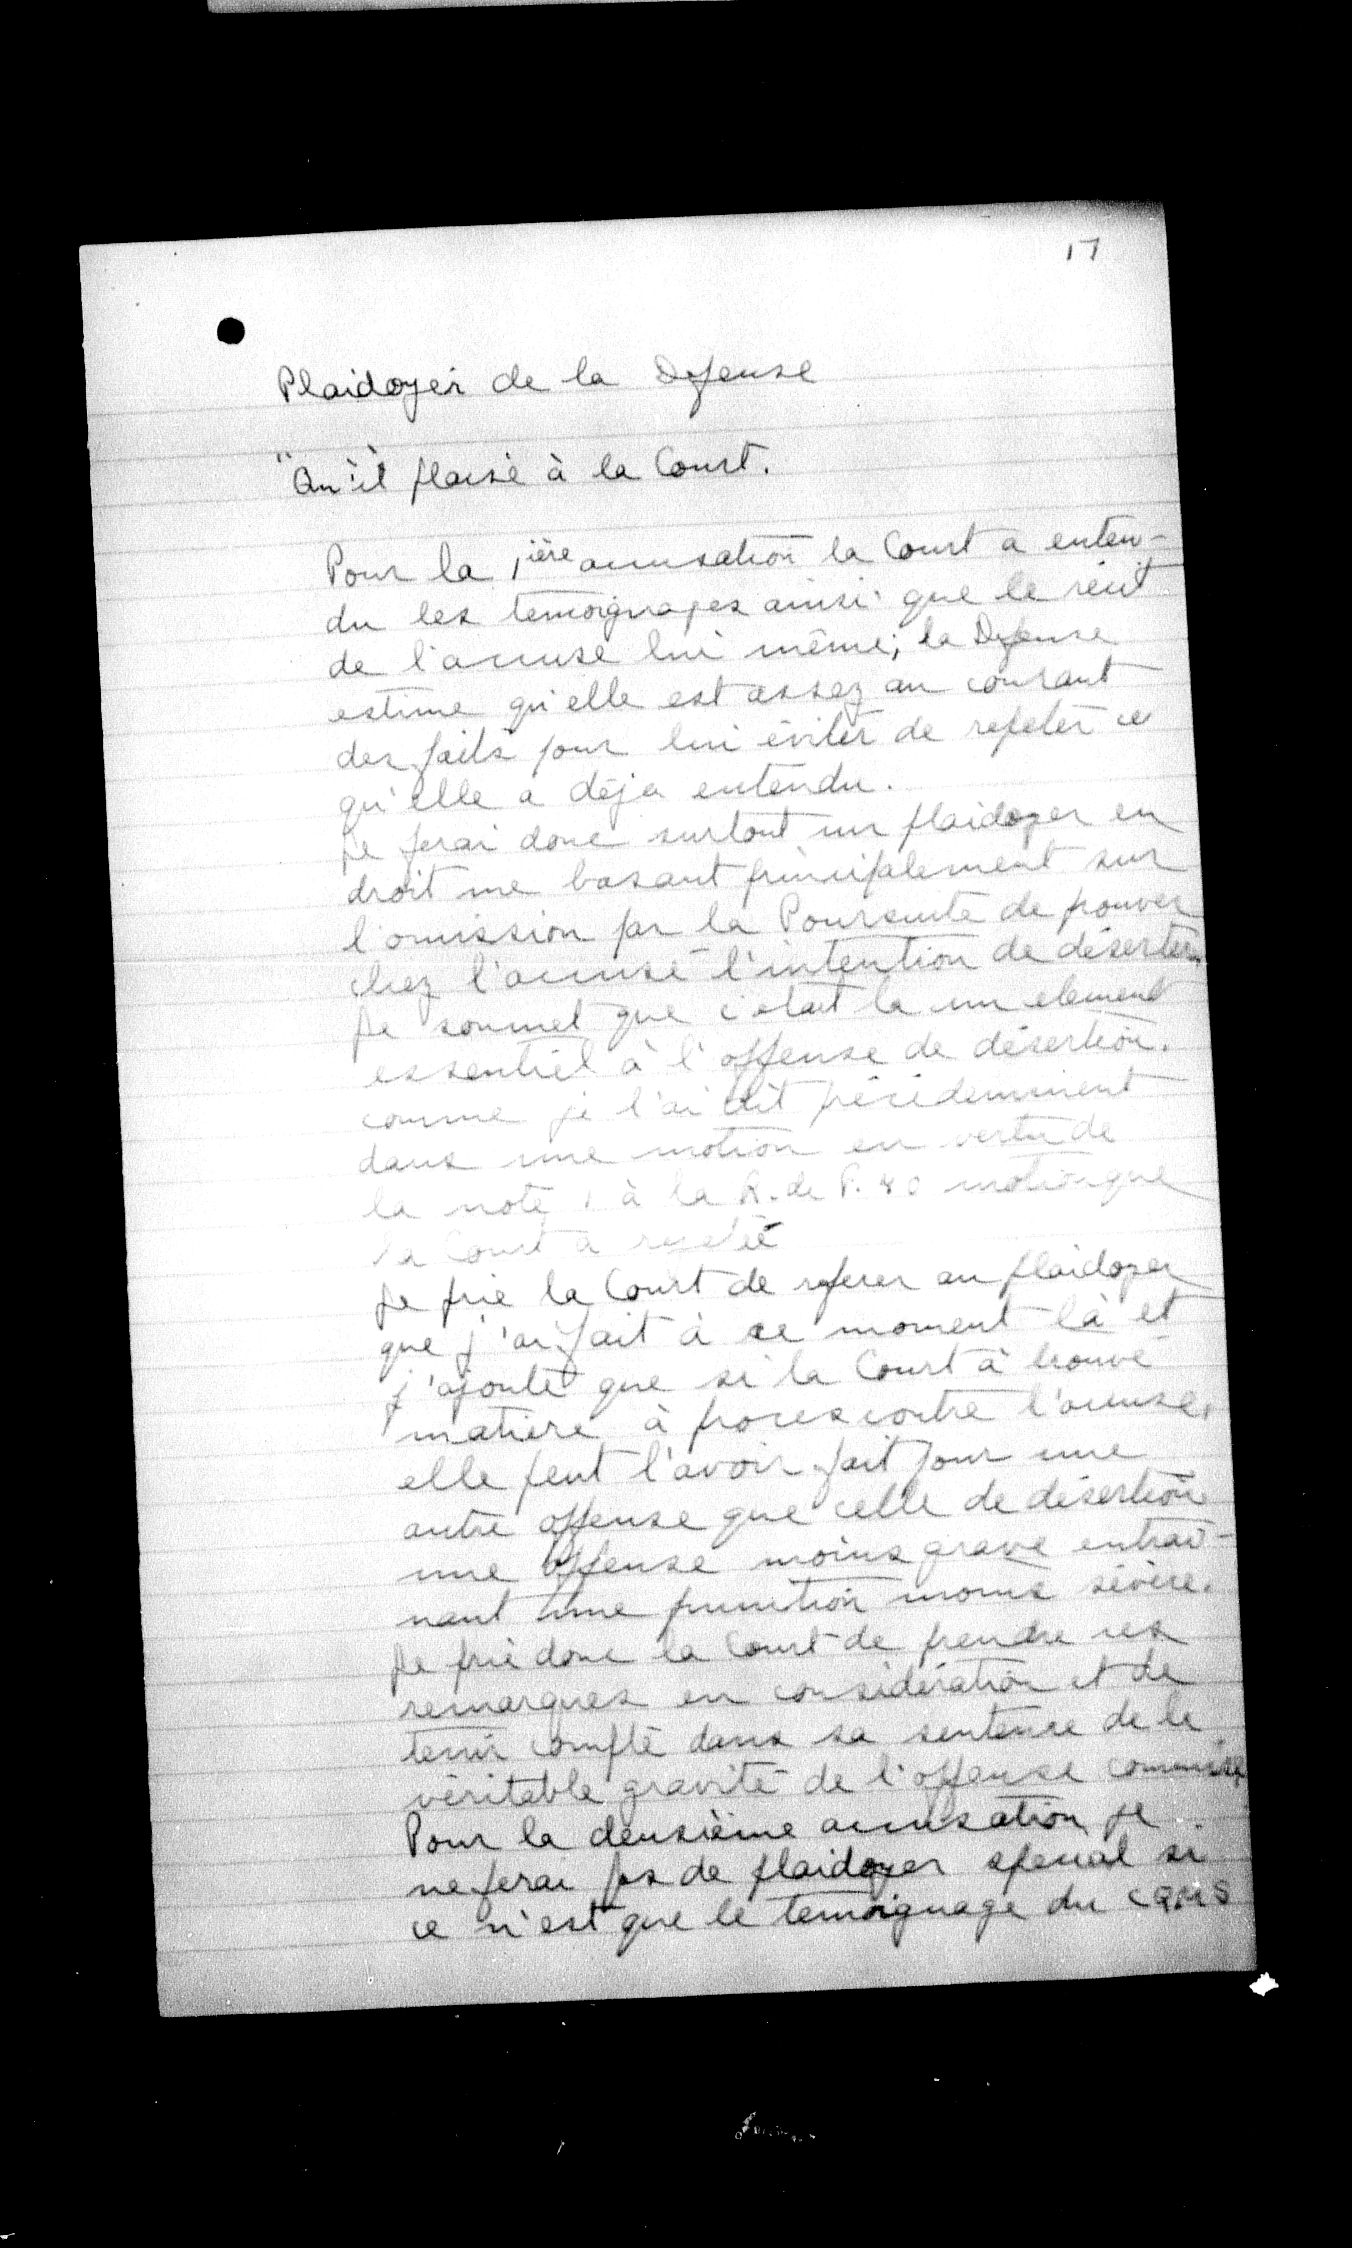 17
Plaidoyer de la Defense
"Qu'il plaise à la Court.
Pour la 1ière accusation la Court a enten-
du les temoignages ainsi que le récit
de l'accuse lui même; la Defense
estime qu'elle est assez au courant
des faits pour lui éviter de repeter ce
qu'elle a déja entendu.
Je ferai donc surtout un plaidoyer en
droit me basant principalement sur
l'omission par la Poursuite de prouver
chez l'accusé l'intention de déserter.
Je soumet que c'etait la un element
essentiel à l'offense de désertion.
comme je l'ai dit précédemment
dans une motion en vertu de
la note 1 à la R. de P. 40 motion que
la Court a rejetée
Je prie la Court de referer au plaidoyer
que j'ai fait à ce moment là et
j'ajoute que si la Court à trouvé
matière à proces contre l'accuse,
elle peut l'avoir fait pour une
autre offense que celle de désertion
une offense moins grave entrai-
nant une punition moins sévère.
Je prie donc la Court de prendre ces
remarques en considération et de
tenir compte dans sa sentence de la
véritable gravité de l'offense commise
Pour la deuxième accusation je
ne ferai pas de plaidoyer special si
ce n'est que le temoignage du CQMS